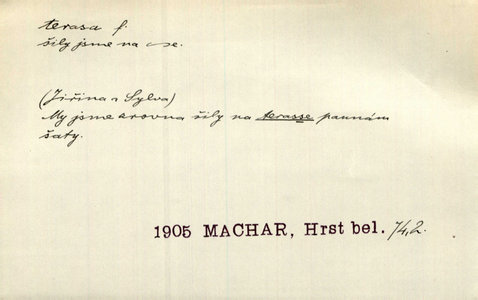 terasa f.
šily jsme na -se.
(Jiřina a Sylva)
My jsme zrovna šily na terasse pannám
šaty.
1905 MACHAR, Hrst bel. 74,2.